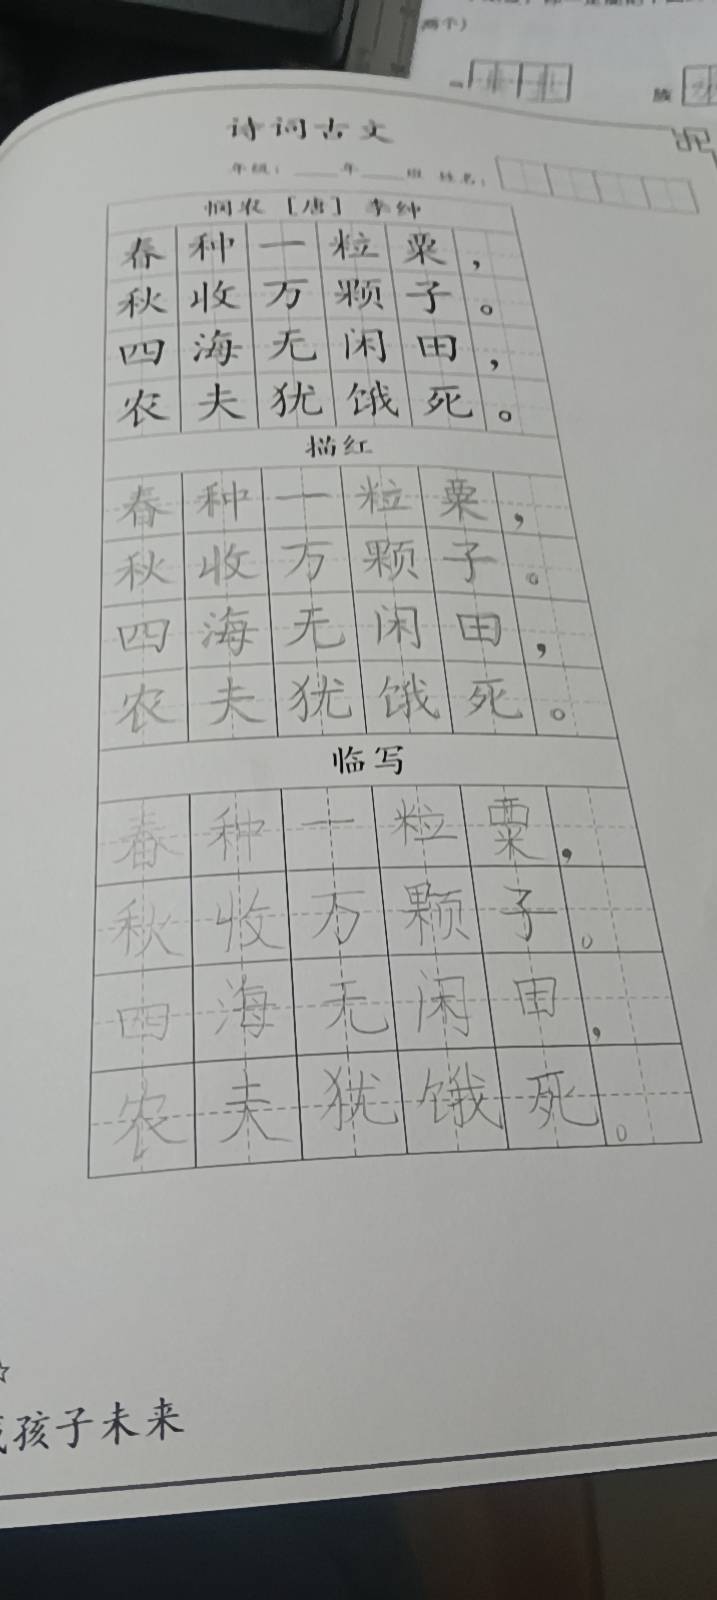 两个）
族
诗词古文
年级：____年____班 姓名：
悯农 [唐] 李绅
春种一粒粟，
秋收万颗子。
四海无闲田，
农夫犹饿死。
描红
春种一粒粟，
秋收万颗子。
四海无闲田，
农夫犹饿死。
临写
春种一粒粟，
秋收万颗子。
四海无闲田，
农夫犹饿死。
孩子未来